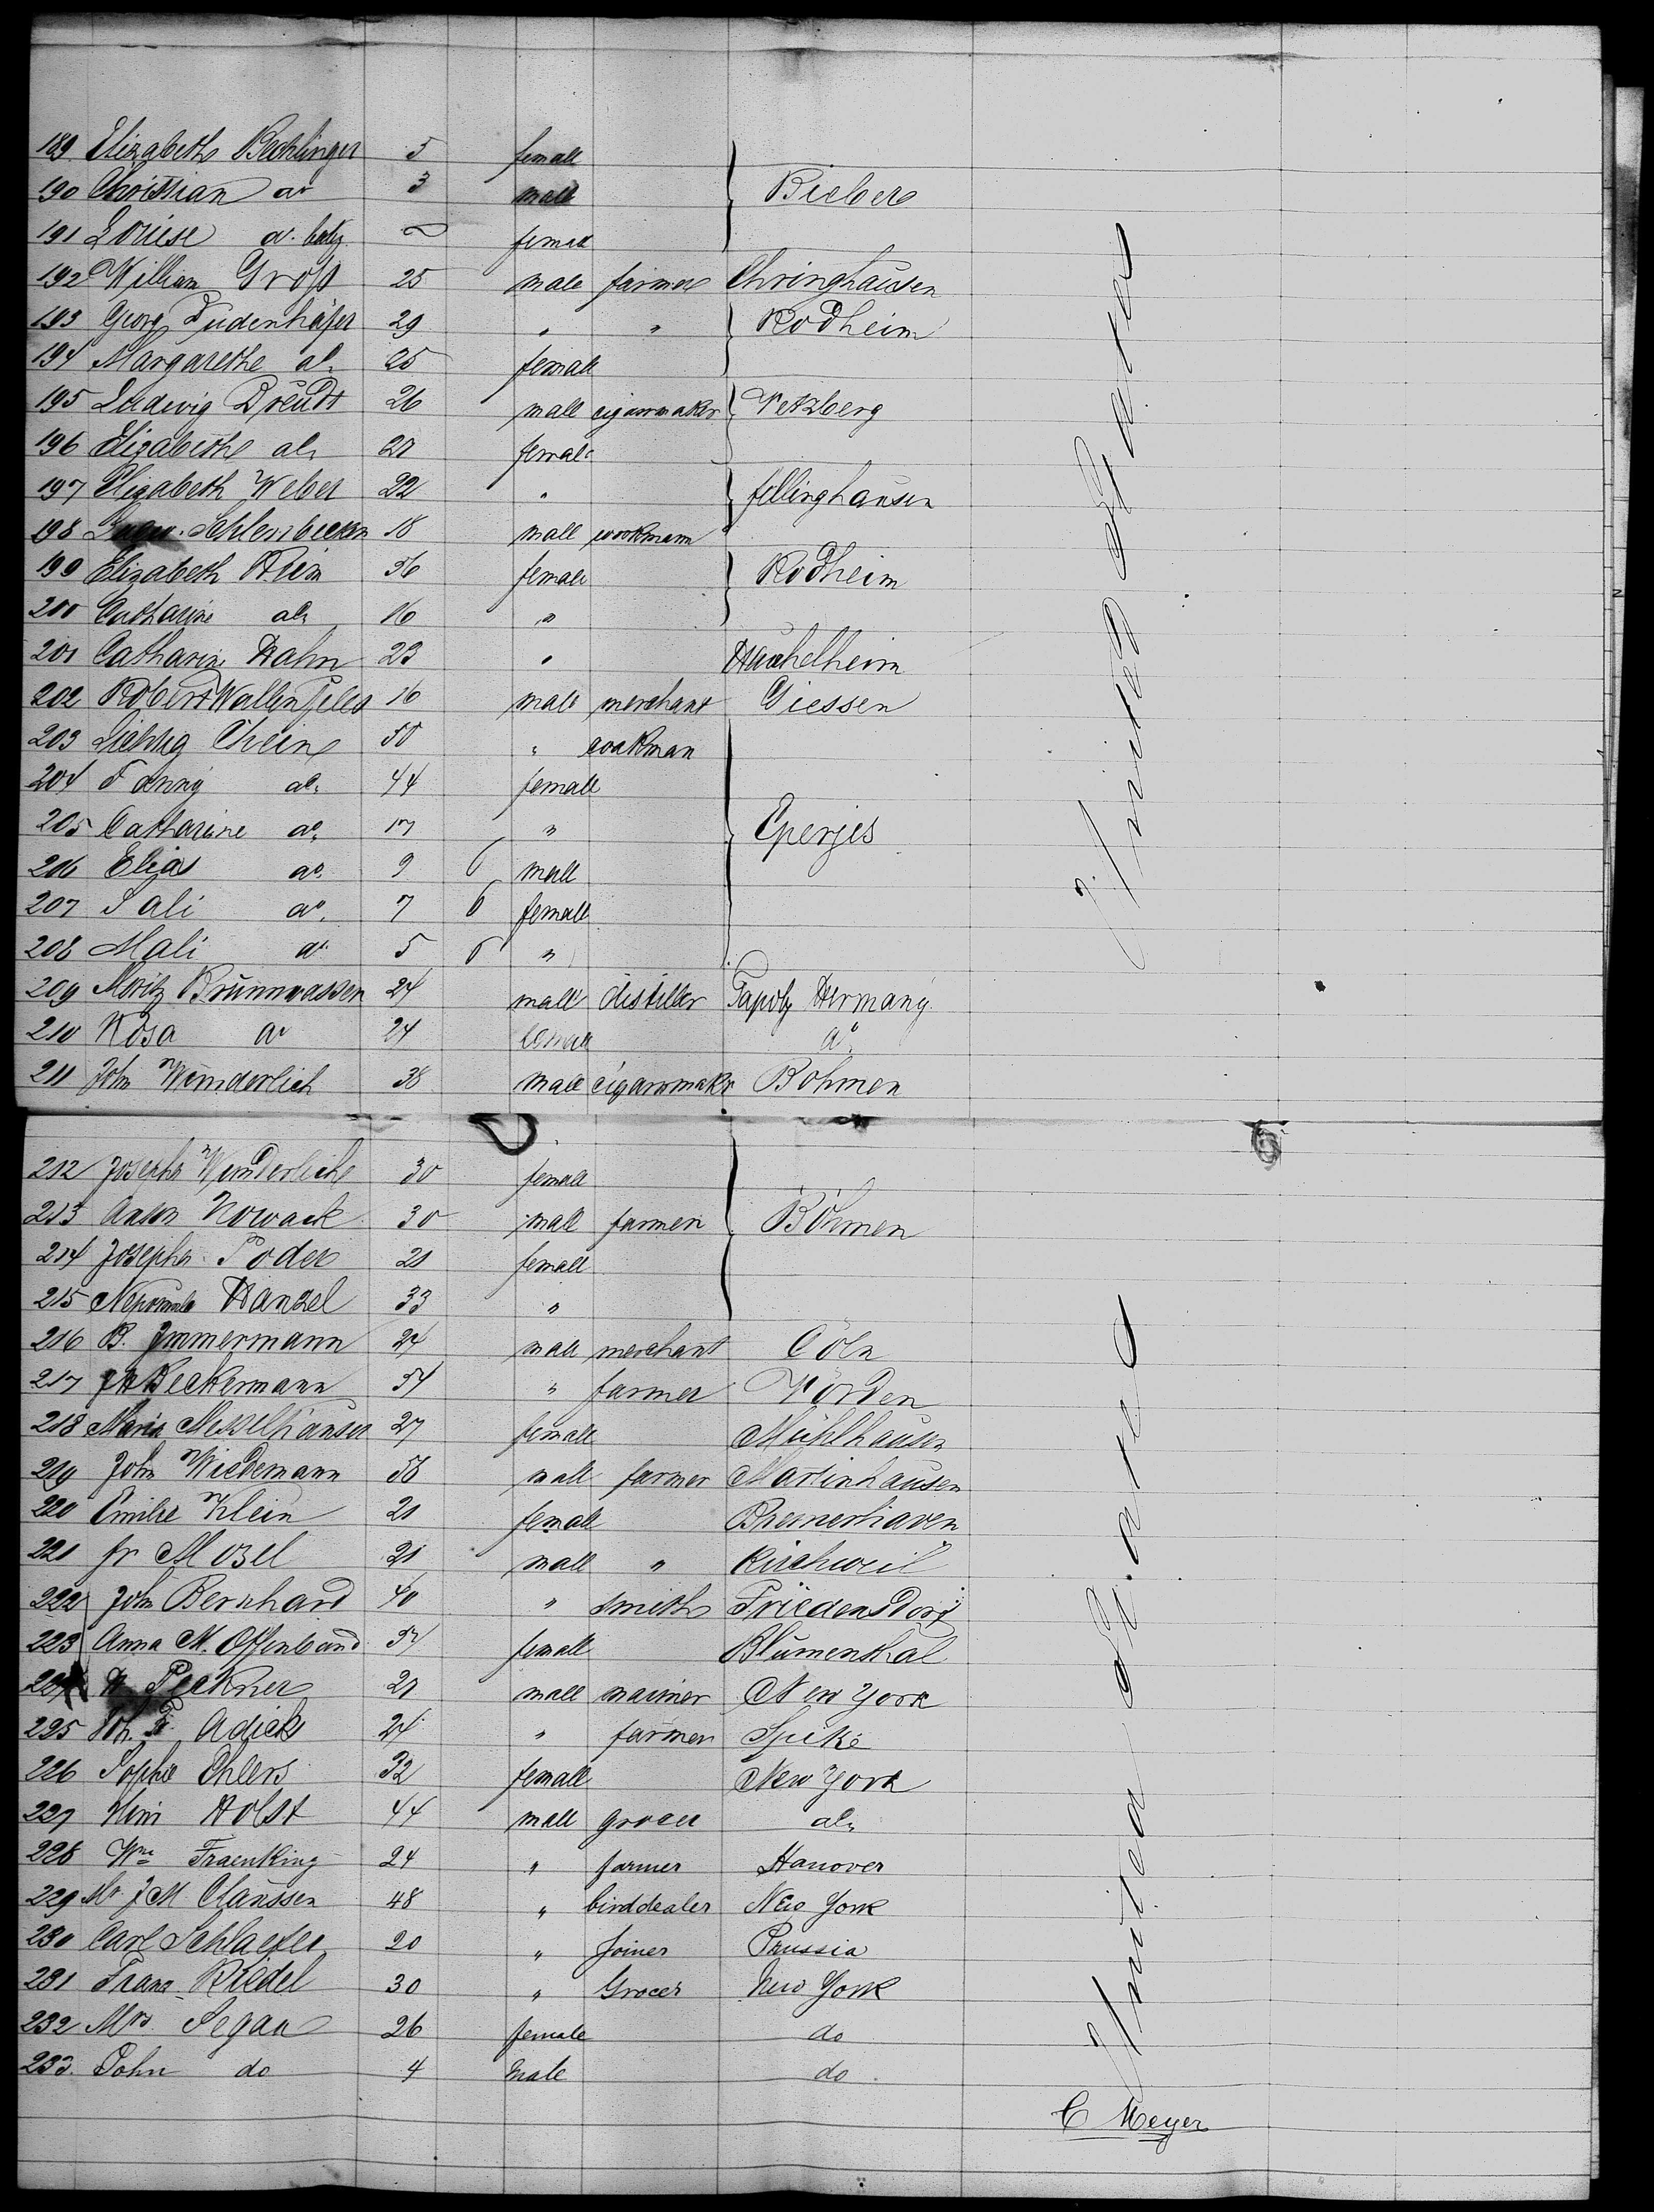 189 Elizabeth Bechlinger 5 female
190 Christian do 3 male Bieber
191 Louise do. baby female
192 William Groß 25 male farmer Chringhausen
193 Georg Dudenhöfer 29 " " Rodheim
194 Margarethe do. 25 female
195 Ludewig Breudt 26 male cigarrmaker Vetzberg
196 Elizabeth do. 21 female
197 Elizabeth Weber 22 " fellinghausen
198 Schlerrbecker 18 male workmann
199 Elizabeth Klein 36 female Rodheim
200 Catharine do. 16 "
201 Catharine Hahn 23 " Heuchelheim
202 Robert Wallenfels 16 male merchant Giessen
203 50 " workman
204 Fanny do. 44 female
205 Catharine do. 17 " Eperjes
206 Elias do. 9 male
207 Sali do. 7 female
208 Mali do. 5 "
209 Moritz Brünnwasser 24 male distiller Tapoly Hermany
210 Rosa do 24 female do.
211 John Wunderlich 38 male cigarrmakr Bohmen
212 Josepha Wunderlich 30 female
213 Anton Nowack 30 male farmer Böhmen
214 Josepha Poder 21 female
215 Hanzel 33 "
216 B. Immermann 24 male merchant Cöln
217 Beckermann 54 " farmer Vörden
218 Maria Messelhäuser 27 female Mühlhausen
219 John Wiedemann 58 male farmer Martinhausen
220 Emilie Klein 21 female Bremerhaven
221 fr Mosel 21 male " Kirchweil
222 John Bernhard 40 " smith Friedensdorf
223 Anna M. Offenband 54 female Blumenthal
224 Peckner 21 male mariner New York
225 Joh. F. Adicks 24 " farmer Spike
226 Sophie Ehlers 32 female New York
227 Hein Holst 44 male grocer do.
228 Wm Fraenking 24 " farmer Hanover
229 Mr J M Claussen 48 " birddealer New York
230 Carl Schlaefer 20 " Joiner Prussia
231 Franz Riedel 30 " Grocer New York
232 Mrs Segan 26 female do
233. John do 4 Male do
United States
United States
C Meyer